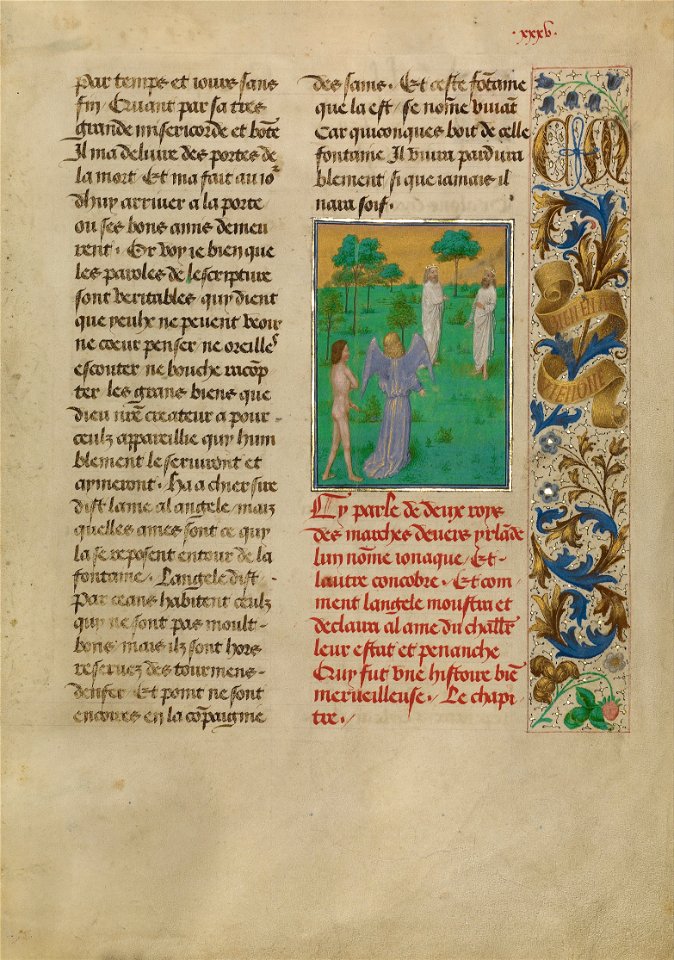 xxxv
par temps et iours sans
fin / Cruant par sa tres
grande misericorde et bōte
Il ma deliure des portes de
la mort . Et ma fait au io͛
dhuy arriver a la porte
ou ses bons ames demeu
rent . Or voy ie bien que
les paroles de lescripture
sont veritables quy dient
que yeulx ne peuent veoir
ne coeur penser ne oreille͛
escouter ne bouche racōp
ter les grans biens que
dieu nr̄e createur a pour
ceulz appareillie quy hum
blement le serviront et
aymeront . Ha a chier sire
dist lame al angele / maiz
quelles ames sont ce quy
la se reposent entour de la
fontaine . Langele dist .
Par ceans habitent ceulz
quy ne sont pas moult
bons / mais ilz sont hors
reservez des tourmens
denfer . Et point ne sont
encores en la cōpaignie
des sains . Et ceste fōtaine
que la est / se nōme vivāt
Car quiconques boit de celle
fontaine . Il vivra pardura
blement / si que iamais il
naura soif .
Cy parle de deux roys
des marches devers yrlāde
lun nōme ionaque / Et
lautre concobre . Et com
ment langele monstra et
declaira al ame du chl̄r
leur estat et penanche
Quy fut vne histoire biē
merveilleuse . Le chapi
tre .
CM
BIEN EN
AVIENGNE